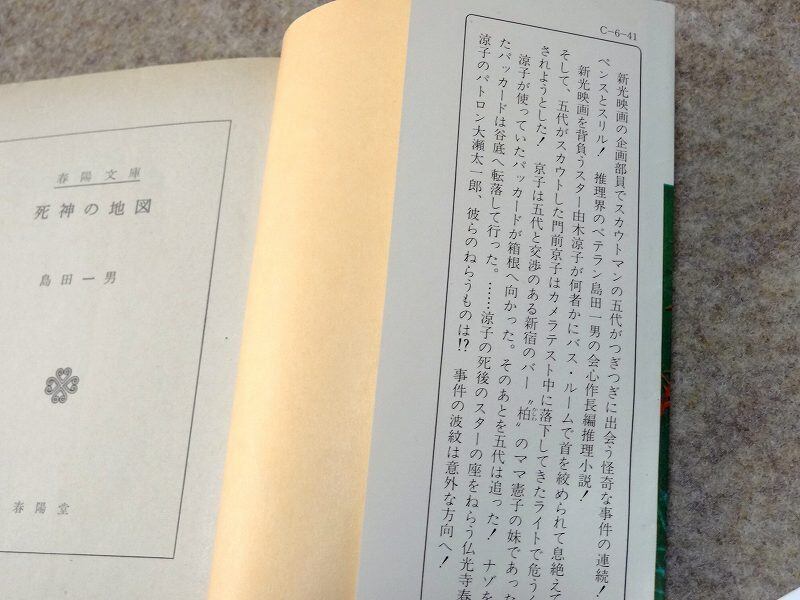 春陽文庫
死神の地図
島田一男
春陽堂
C-6-41
新光映画の企画部員でスカウトマンの五代がつぎつぎに出会う怪奇な事件の連続!
ペンスとスリル! 推理界のベテラン島田一男の会心作長編推理小説!
新光映画を背負うスター由木涼子が何者かにバス・ルームで首を絞められて息絶えて
そして、五代がスカウトした門前京子はカメラテスト中に落下してきたライトで危うく
されようとした! 京子は五代と交渉のある新宿のバー〝柏〟のママ憲子の妹であっ
かしわ
涼子が使っていたパッカードが箱根へ向かった。そのあとを五代は追った! ナゾを
たパッカードは谷底へ転落して行った。……涼子の死後のスターの座をねらう仏光寺春
涼子のパトロン大瀬太一郎、彼らのねらうものは!? 事件の波紋は意外な方向へ!